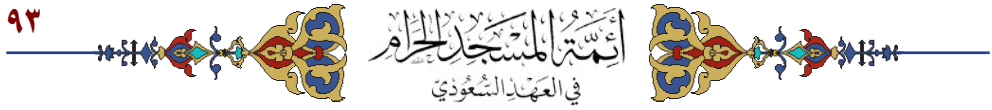 ٩٣
أَئِمَّةُ المَسْجِدِ الحَرَامِ
فِي العَهْدِ السُّعُودِيّ